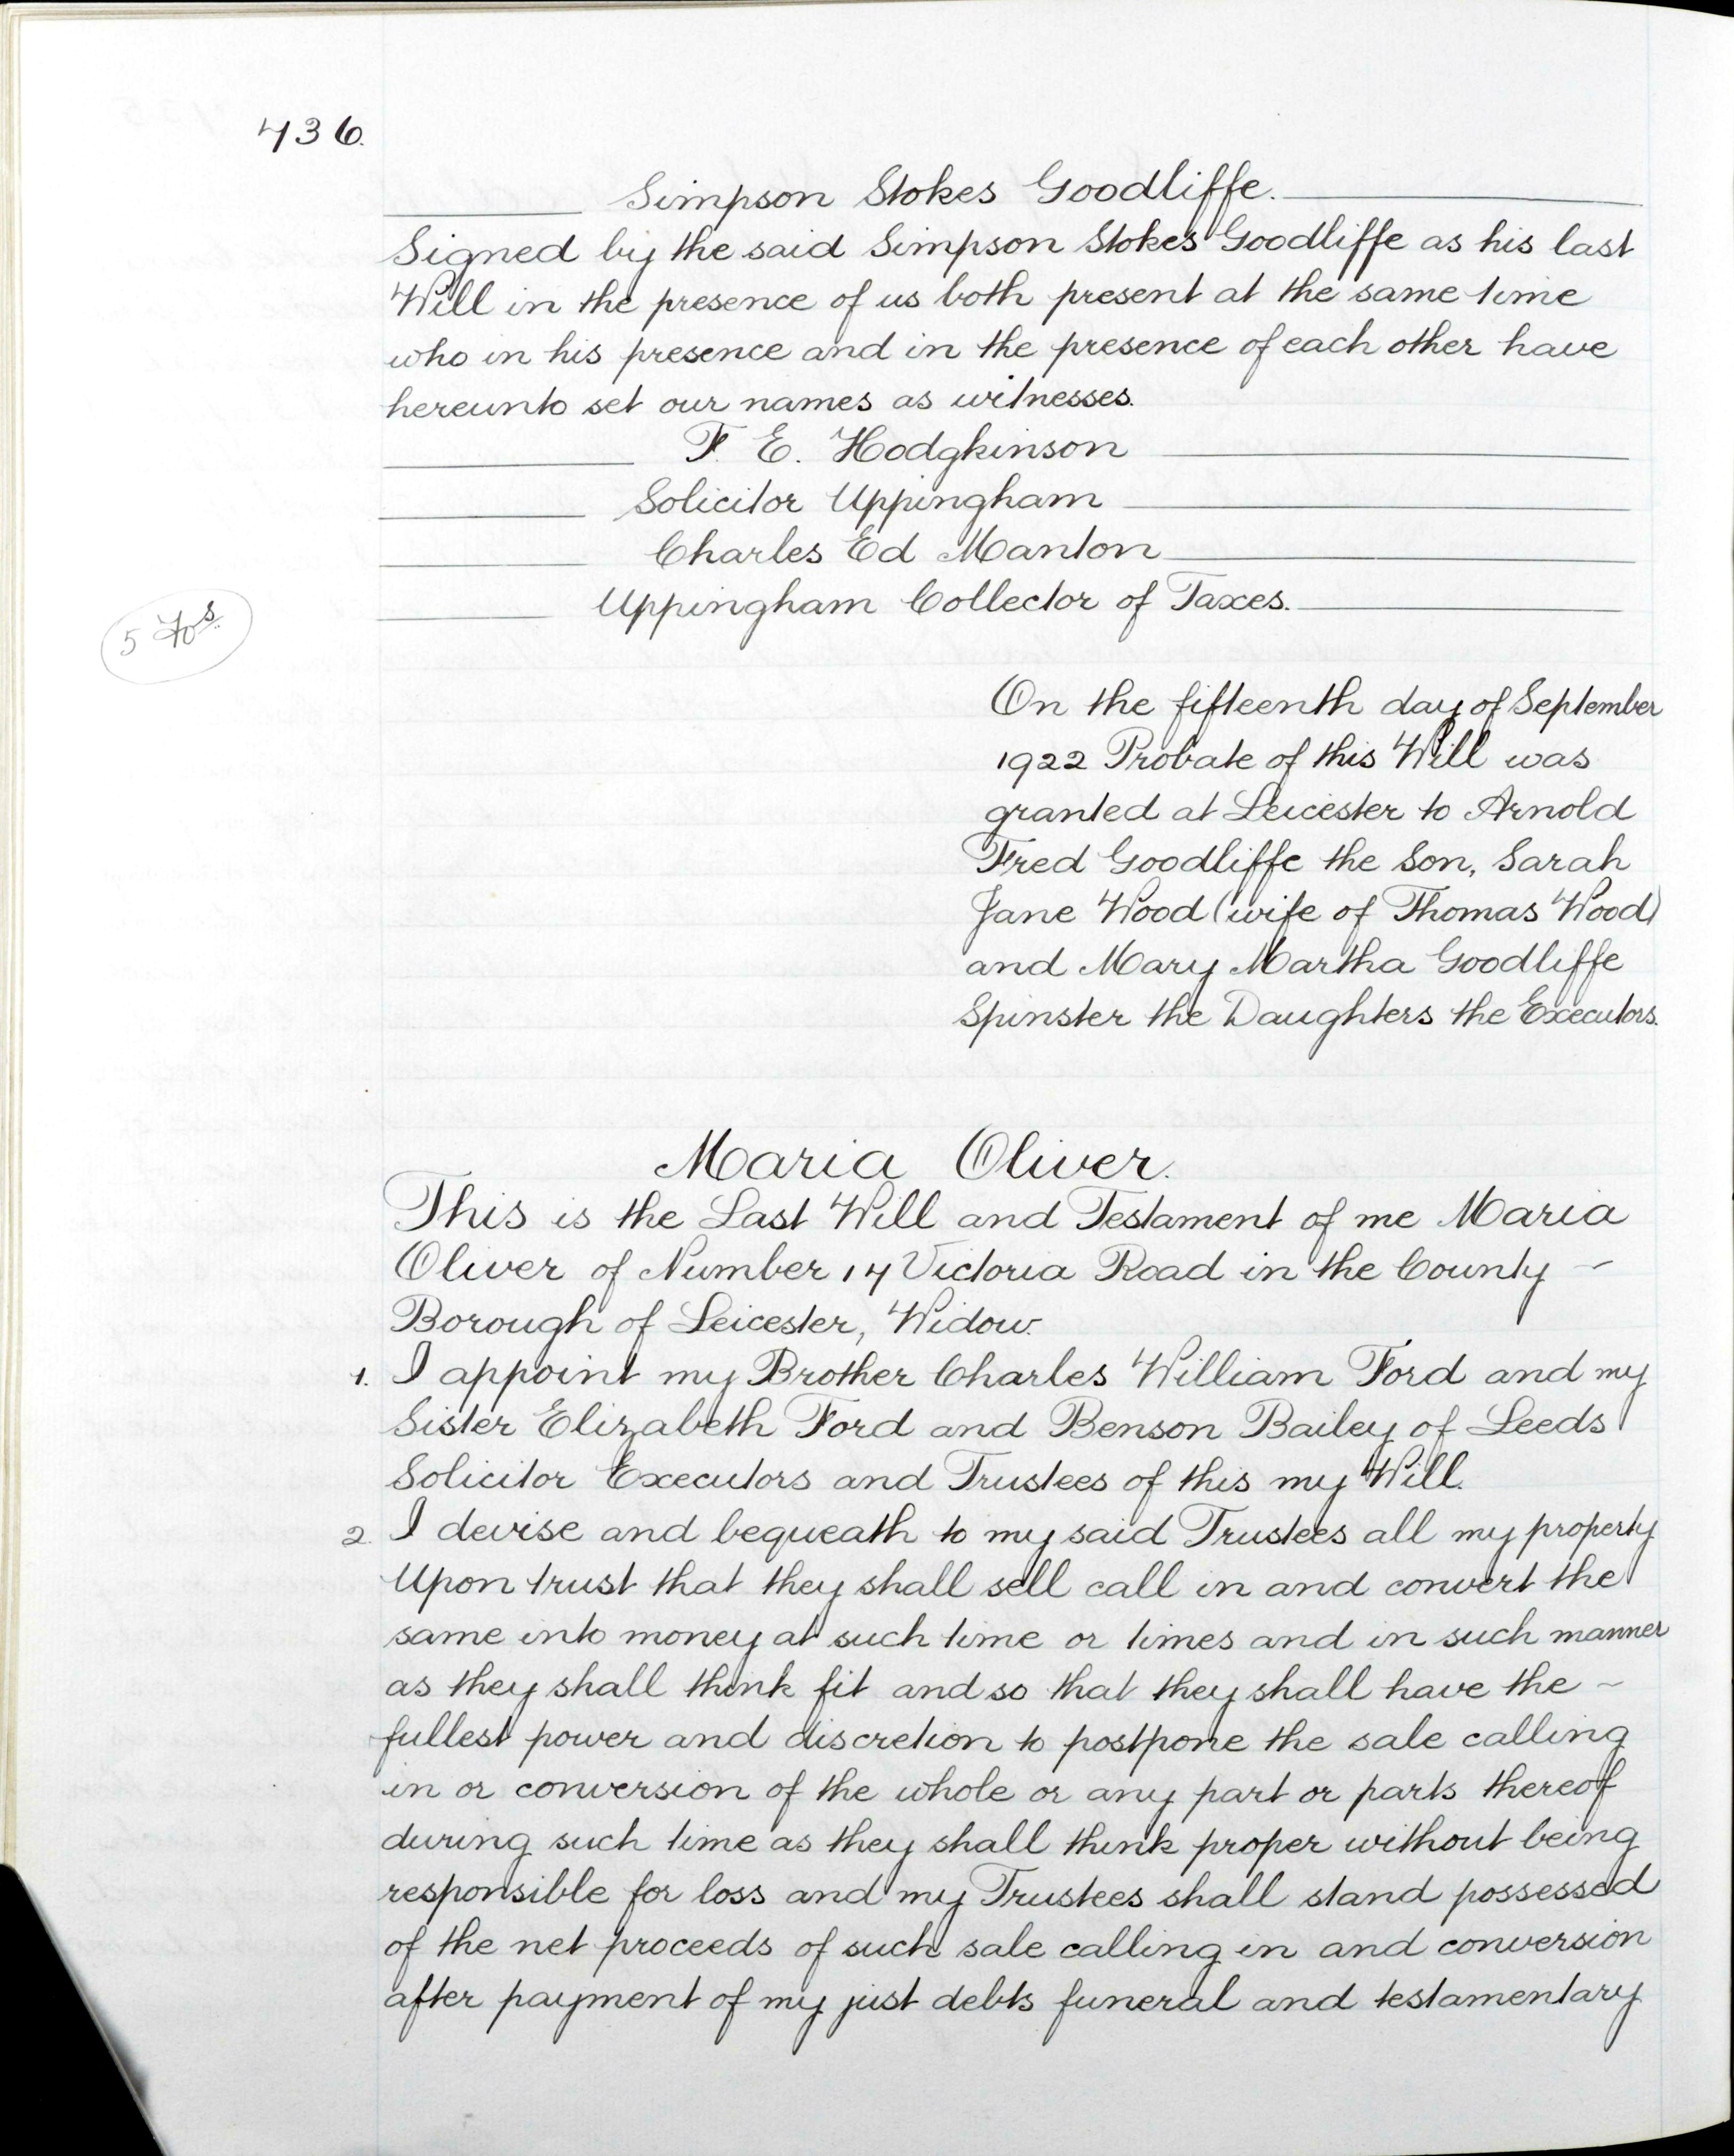 436.
Simpson Stokes Goodliffe.
Signed by the said Simpson Stokes Goodliffe as his last
Will in the presence of us both present at the same time
who in his presence and in the presence of each other have
hereunto set our names as witnesses.
F. E. Hodgkinson
Solicitor Uppingham
Charles Ed Manton
Uppingham Collector of Taxes.
5 Fos.
On the fifteenth day of September
1922 Probate of this Will was
granted at Leicester to Arnold
Fred Goodliffe the Son, Sarah
Jane Wood (wife of Thomas Wood)
and Mary Martha Goodliffe
Spinster the Daughters the Executors.
Maria Oliver.
This is the Last Will and Testament of me Maria
Oliver of Number 14 Victoria Road in the County –
Borough of Leicester, Widow.
1. I appoint my Brother Charles William Ford and my
Sister Elizabeth Ford and Benson Bailey of Leeds
Solicitor Executors and Trustees of this my Will.
2. I devise and bequeath to my said Trustees all my property
Upon trust that they shall sell call in and convert the
same into money at such time or times and in such manner
as they shall think fit and so that they shall have the –
fullest power and discretion to postpone the sale calling
in or conversion of the whole or any part or parts thereof
during such time as they shall think proper without being
responsible for loss and my Trustees shall stand possessed
of the net proceeds of such sale calling in and conversion
after payment of my just debts funeral and testamentary